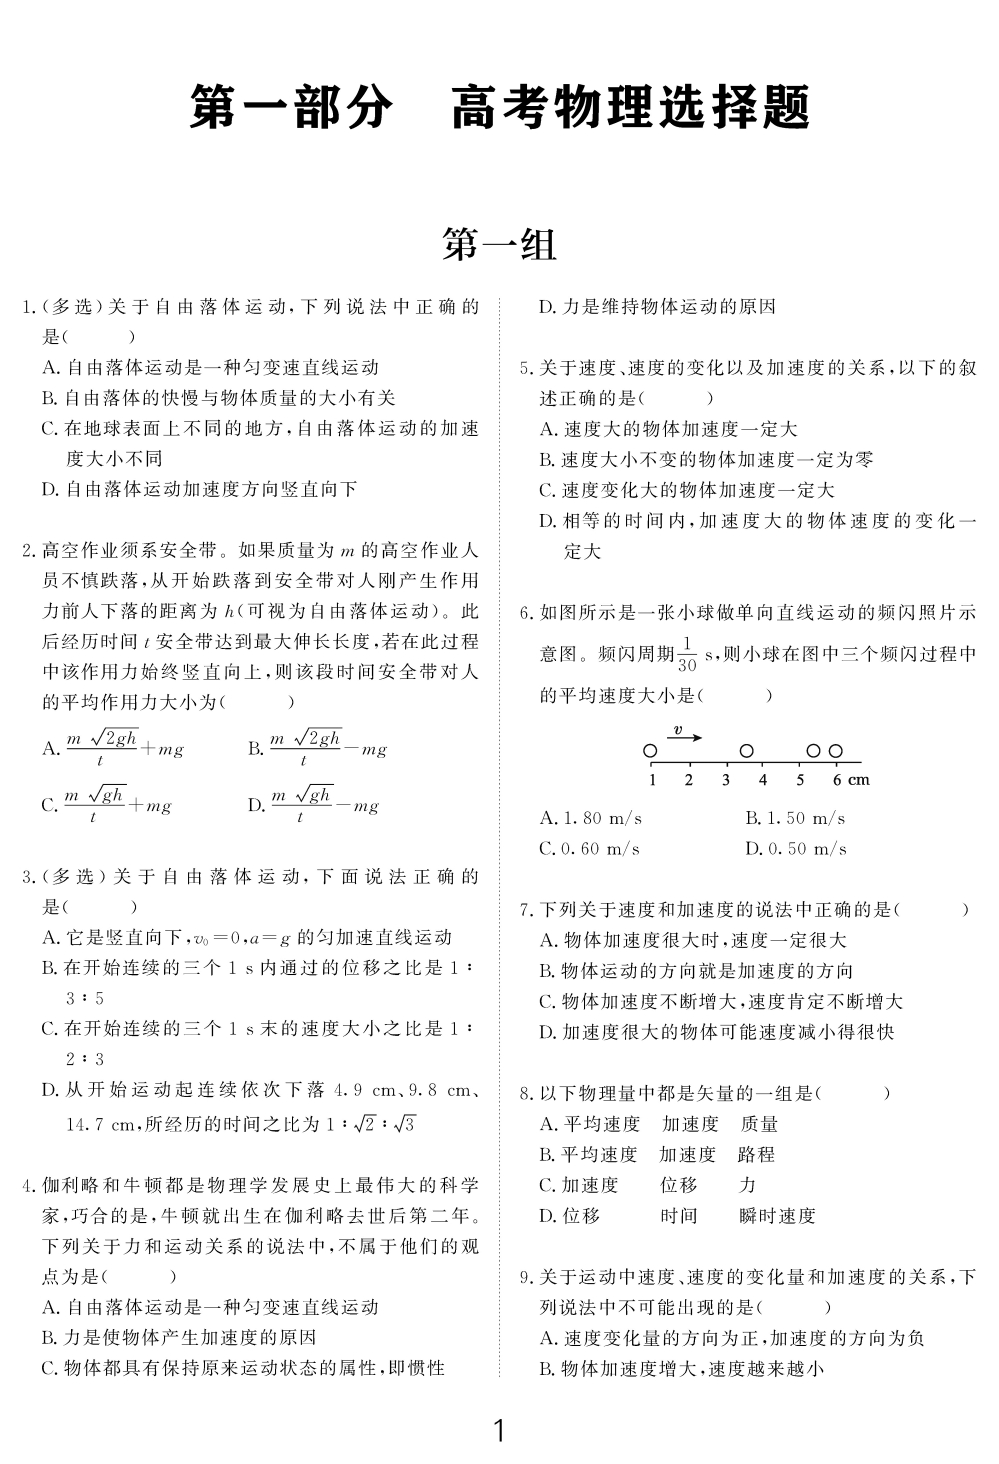 第一部分　高考物理选择题
第一组
1.(多选)关于自由落体运动,下列说法中正确的
是(　　)
A. 自由落体运动是一种匀变速直线运动
B. 自由落体的快慢与物体质量的大小有关
C. 在地球表面上不同的地方,自由落体运动的加速
度大小不同
D. 自由落体运动加速度方向竖直向下
2. 高空作业须系安全带。如果质量为 m 的高空作业人
员不慎跌落,从开始跌落到安全带对人刚产生作用
力前人下落的距离为 h(可视为自由落体运动)。此
后经历时间 t 安全带达到最大伸长长度,若在此过程
中该作用力始终竖直向上,则该段时间安全带对人
的平均作用力大小为(　　)
A. m√(2gh)/t+mg　B. m√(2gh)/t−mg
C. m√(gh)/t+mg　D. m√(gh)/t−mg
3.(多选)关于自由落体运动,下面说法正确的
是(　　)
A. 它是竖直向下,v₀=0,a=g 的匀加速直线运动
B. 在开始连续的三个 1 s 内通过的位移之比是 1∶
3∶5
C. 在开始连续的三个 1 s 末的速度大小之比是 1∶
2∶3
D. 从开始运动起连续依次下落 4.9 cm、9.8 cm、
14.7 cm,所经历的时间之比为 1∶√2∶√3
4. 伽利略和牛顿都是物理学发展史上最伟大的科学
家,巧合的是,牛顿就出生在伽利略去世后第二年。
下列关于力和运动关系的说法中,不属于他们的观
点为是(　　)
A. 自由落体运动是一种匀变速直线运动
B. 力是使物体产生加速度的原因
C. 物体都具有保持原来运动状态的属性,即惯性
D. 力是维持物体运动的原因
5. 关于速度、速度的变化以及加速度的关系,以下的叙
述正确的是(　　)
A. 速度大的物体加速度一定大
B. 速度大小不变的物体加速度一定为零
C. 速度变化大的物体加速度一定大
D. 相等的时间内,加速度大的物体速度的变化一
定大
6. 如图所示是一张小球做单向直线运动的频闪照片示
意图。频闪周期1/30 s,则小球在图中三个频闪过程中
的平均速度大小是(　　)
v
1 2 3 4 5 6 cm
A. 1.80 m/s　B. 1.50 m/s
C. 0.60 m/s　D. 0.50 m/s
7. 下列关于速度和加速度的说法中正确的是(　　)
A. 物体加速度很大时,速度一定很大
B. 物体运动的方向就是加速度的方向
C. 物体加速度不断增大,速度肯定不断增大
D. 加速度很大的物体可能速度减小得很快
8. 以下物理量中都是矢量的一组是(　　)
A. 平均速度　加速度　质量
B. 平均速度　加速度　路程
C. 加速度　位移　力
D. 位移　时间　瞬时速度
9. 关于运动中速度、速度的变化量和加速度的关系,下
列说法中不可能出现的是(　　)
A. 速度变化量的方向为正,加速度的方向为负
B. 物体加速度增大,速度越来越小
1